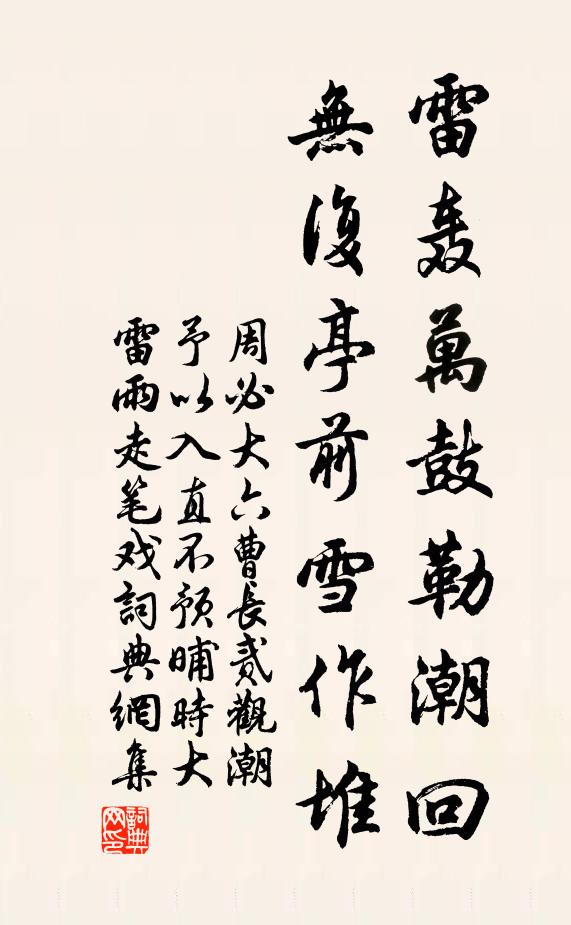 雷轰萬鼓勒潮回
無復亭前雪作堆
周必大六曹長貳觀潮
予以入直不预晡時大
雷雨走笔戏詞典網集
詞典网印